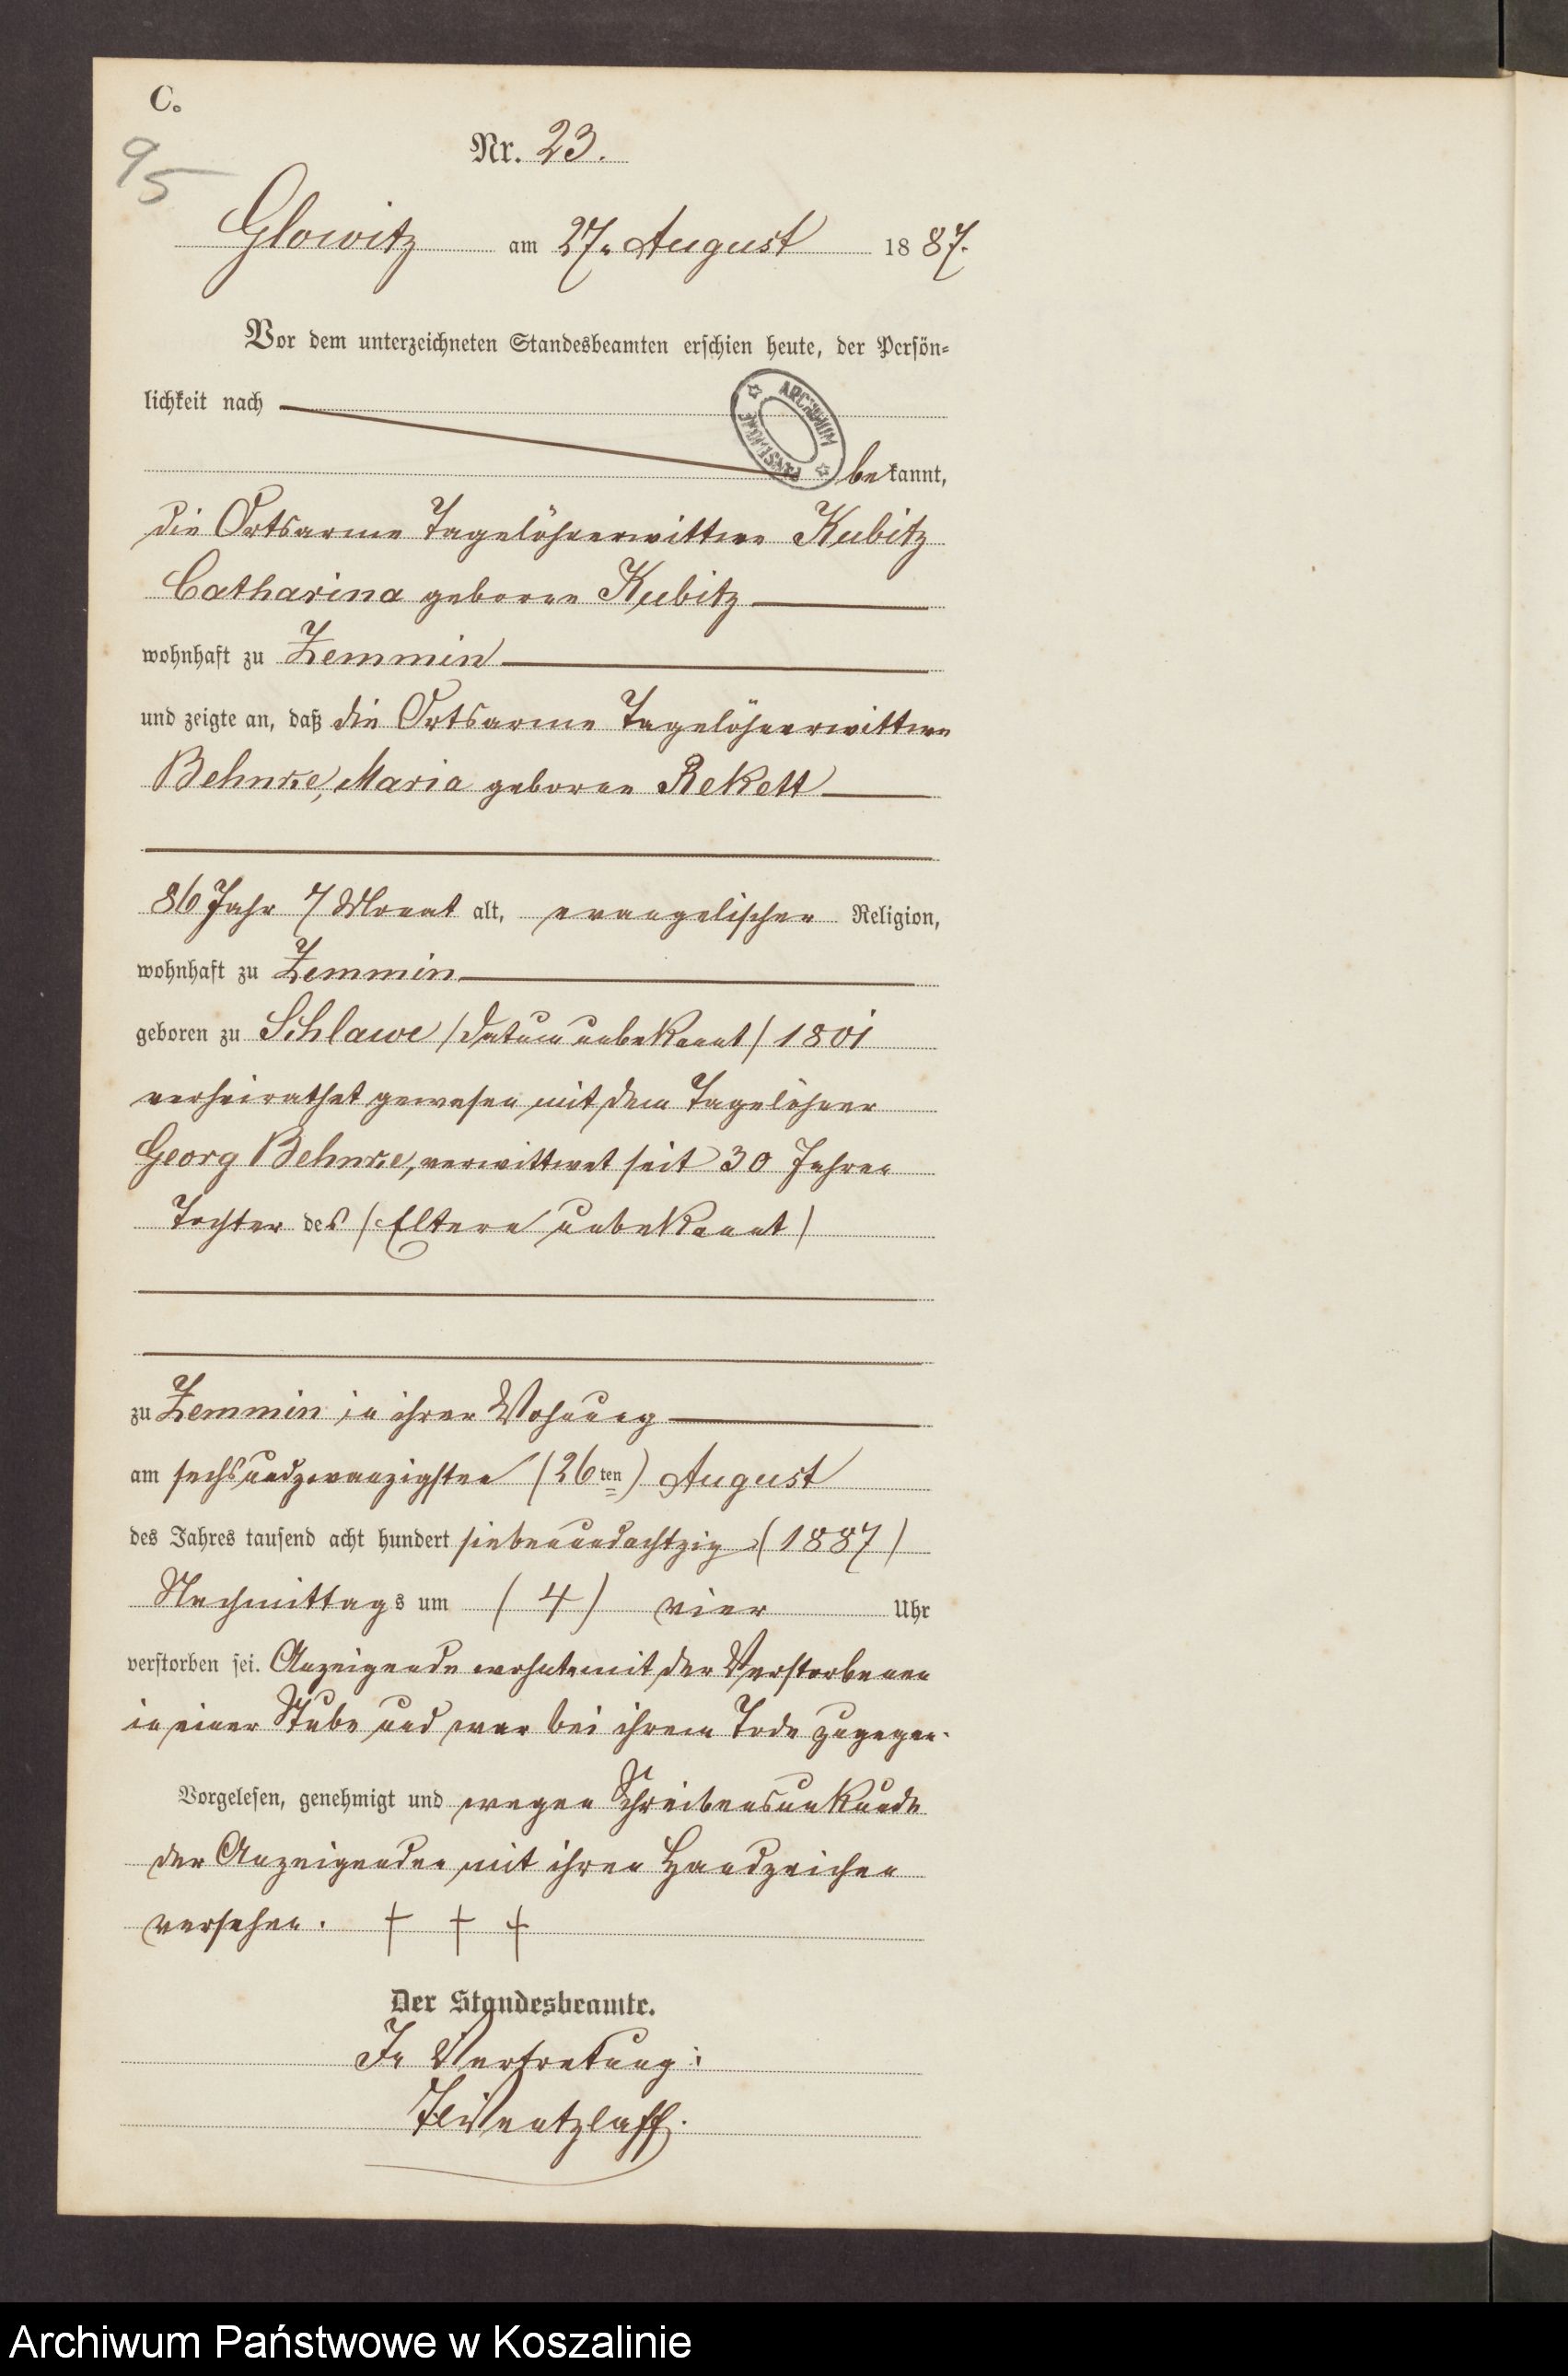 C.
95
Nr. 23.
Glowitz am 27. August 1887.
Vor dem unterzeichneten Standesbeamten erschien heute, der Persön-
lichkeit nach
ARCHIWUM PAŃSTWOWE
bekannt,
die Ortsarme Tagelöhnerwittwe Kubitz
Catharina geborne Kubitz
wohnhaft zu Zemmin
und zeigte an, daß die Ortsarme Tagelöhnerwittwe
Behnke, Maria geborne Rekett
86 Jahr 7 Monat alt, evangelischer Religion,
wohnhaft zu Zemmin
geboren zu Schlawe / Datum unbekannt / 1801
verheirathet gewesen mit dem Tagelöhner
Georg Behnke, verwittwet seit 30 Jahren
Tochter des / Eltern unbekannt /
zu Zemmin in ihrer Wohnung
am sechsundzwanzigsten (26ten) August
des Jahres tausend acht hundert siebenundachtzig (1887)
Nachmittags um (4) vier Uhr
verstorben sei. Anzeigende wohnte mit der Verstorbenen
in einer Stube und war bei ihrem Tode zugegen.
Vorgelesen, genehmigt und wegen Schreibensunkunde
der Anzeigenden mit ihren Handzeichen
versehen. † † †
Der Standesbeamte.
In Vertretung:
Wentzlaff.
Archiwum Państwowe w Koszalinie